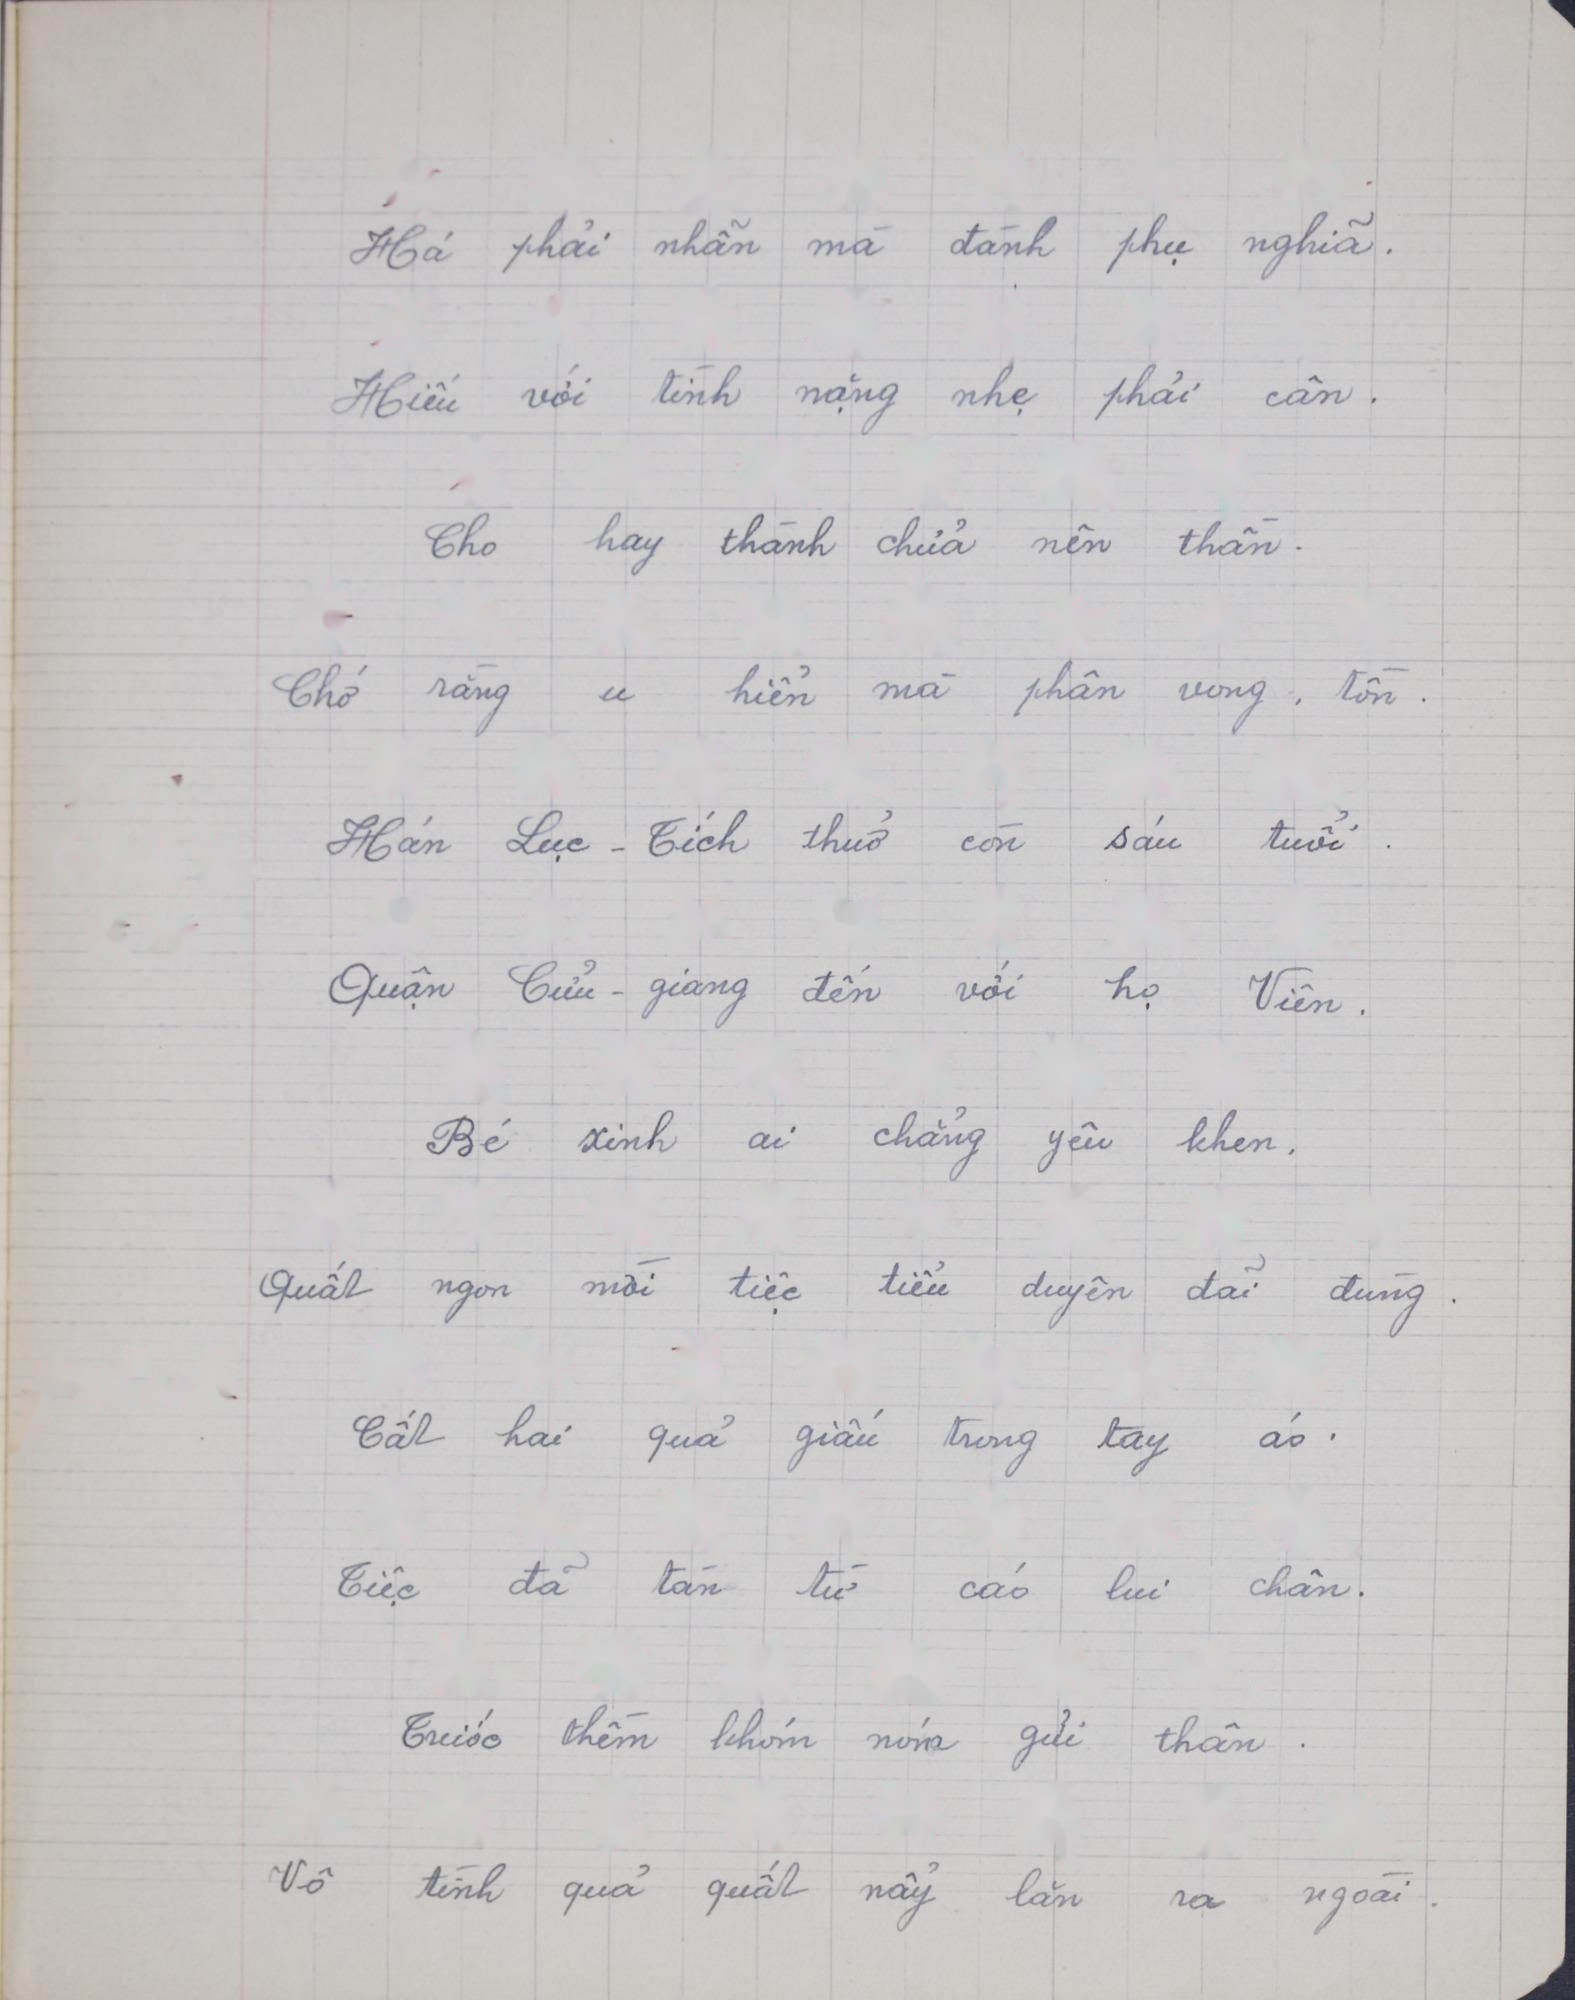 Há phải nhẫn mà đành phụ nghiã.
Hiếu với tình nặng nhẹ phải cân.
Cho hay thành chửa nên thần.
Chớ rằng u hiển mà phân vong, tồn.
Hán Lục - Tích thuở còn sáu tuổi.
Quận Cửu - giang đến với họ Viên.
Bé xinh ai chẳng yêu khen.
Quất ngon mời tiệc tiểu duyên đãi đưng.
Cất hai quả giấu trong tay áo.
Tiệc đã tàn từ cáo lui chân.
Trước thềm khóm nóm gửi thân.
Vô tình quả quất nẩy lăn ra ngoài.